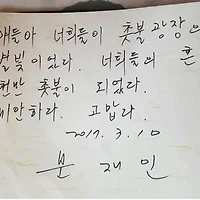 얘들아 너희들이 촛불광장의
별빛이었다. 너희들의 혼
천만 촛불이 되었다.
미안하다. 고맙다.
2017. 3. 10
문 재 인